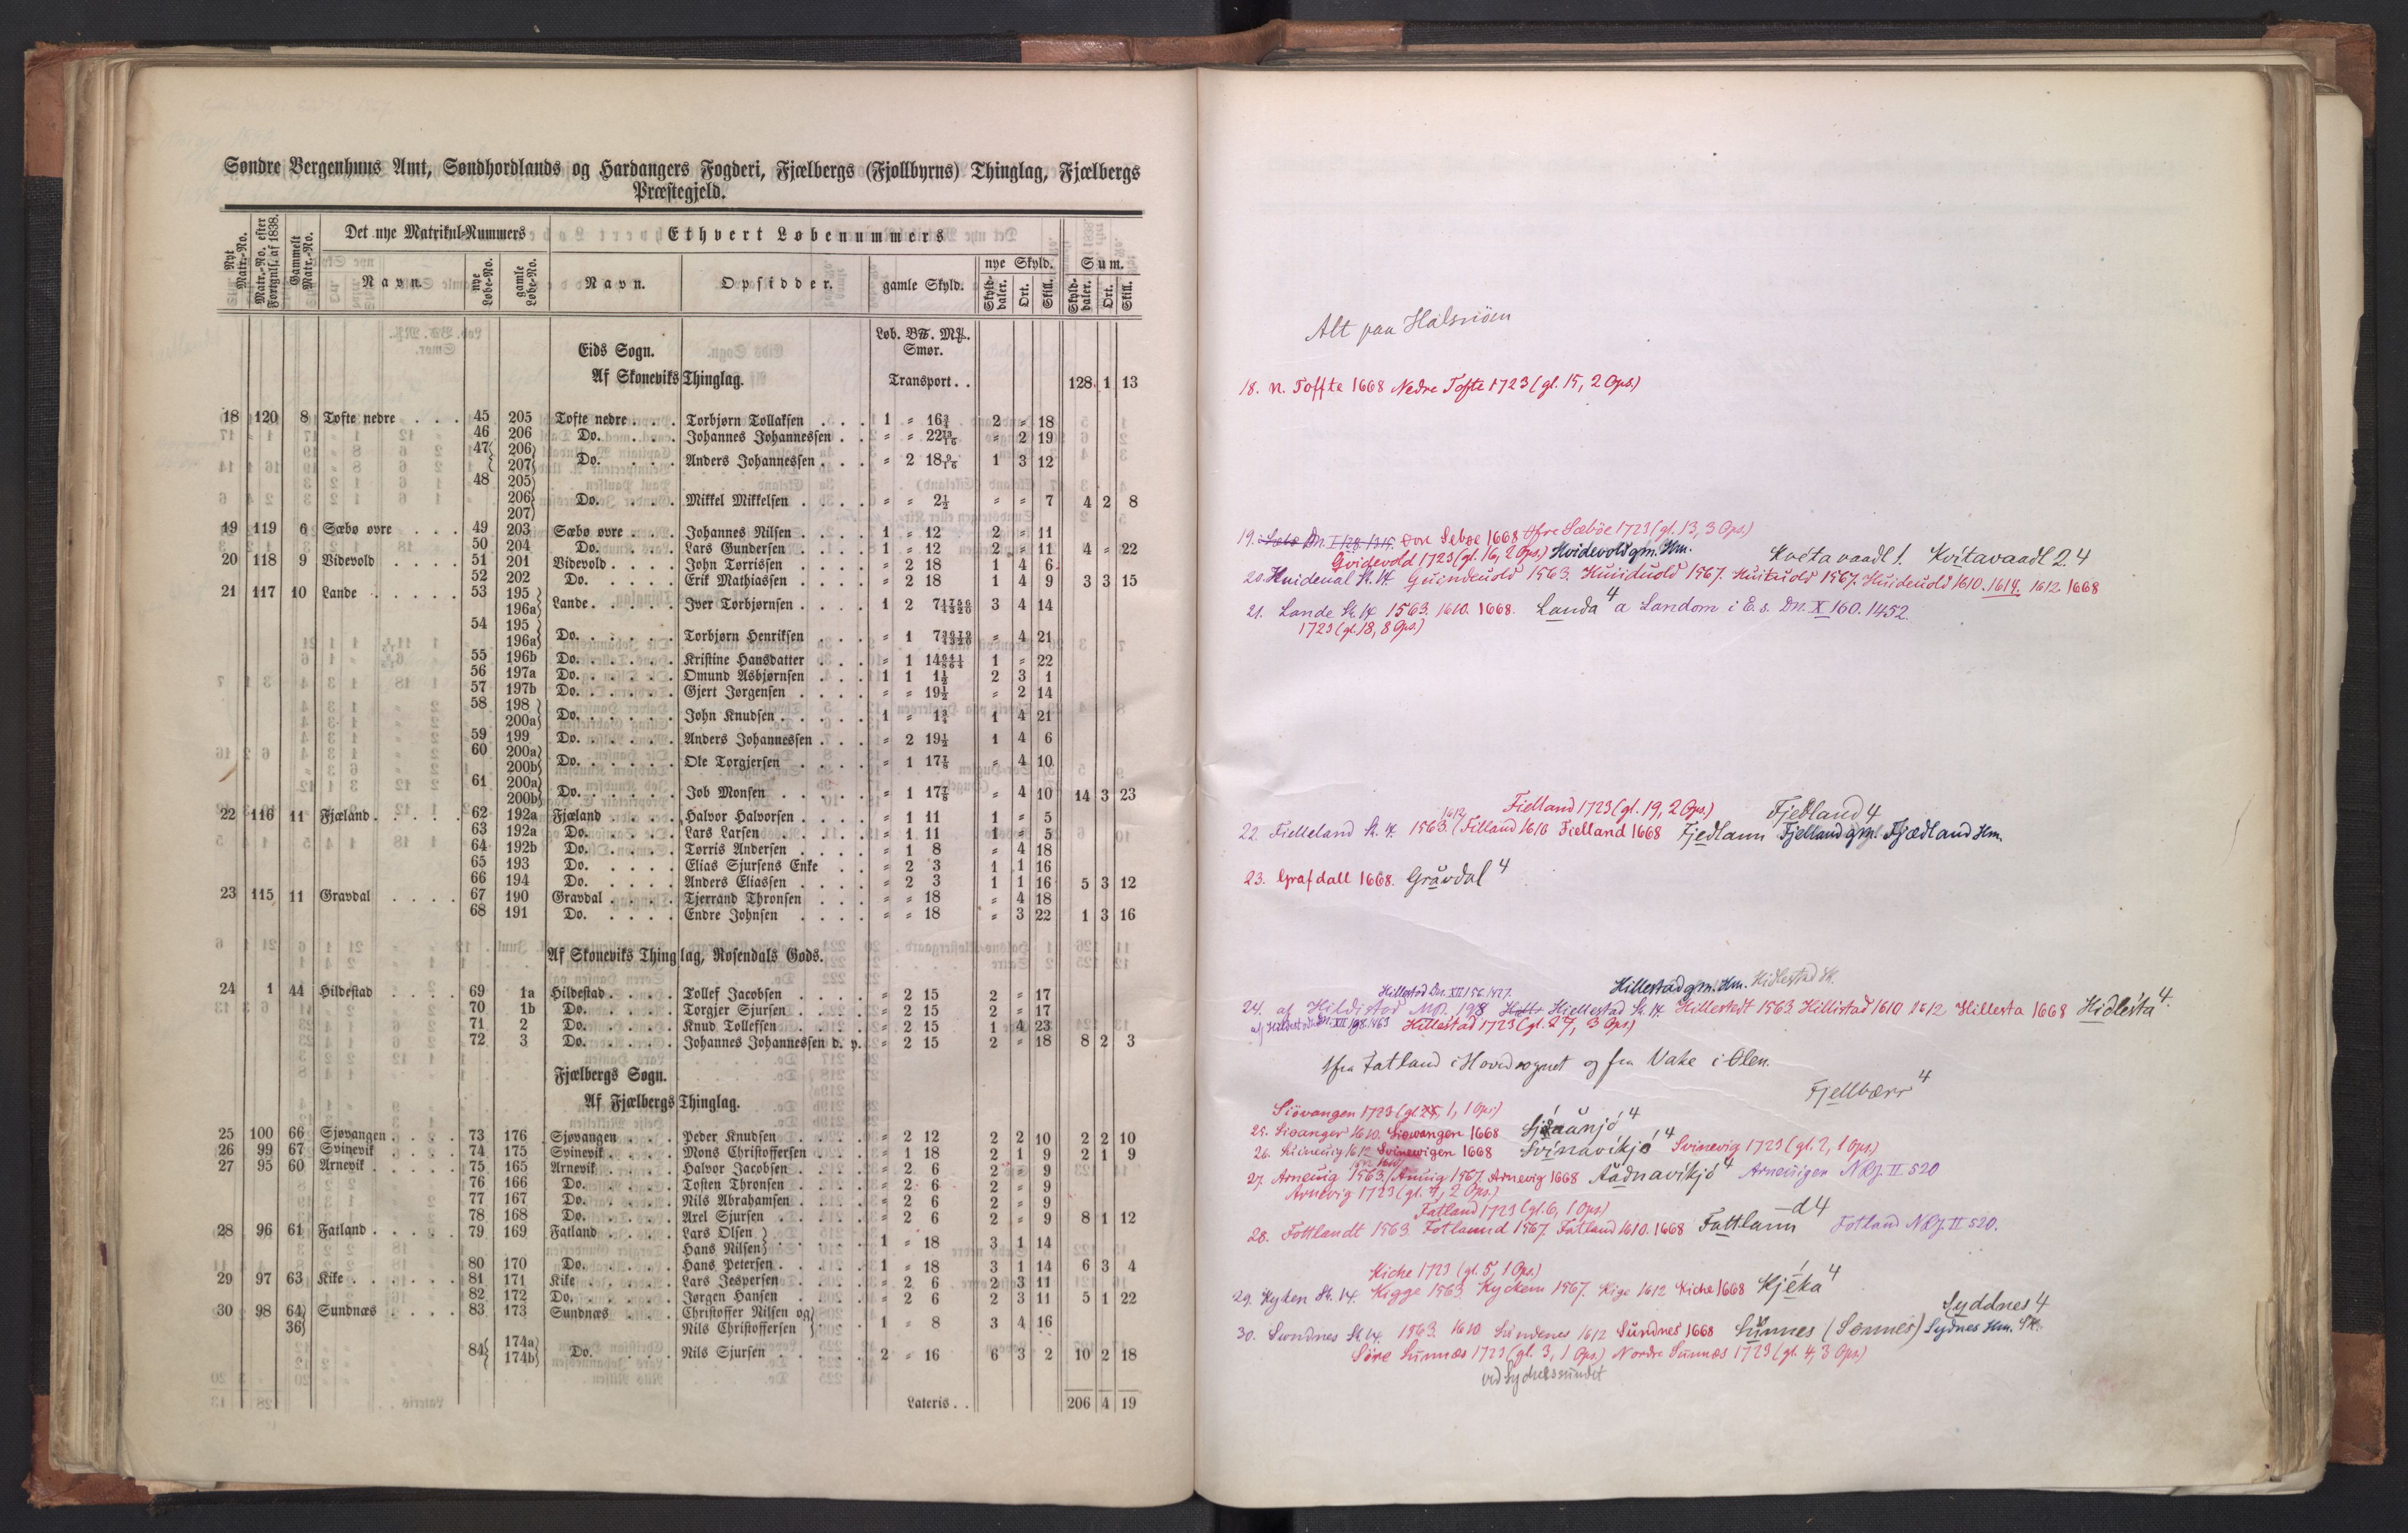 Søndre Bergenhuus Amt, Søndhordlands og Hardangers Fogderi, Fjælbergs (Fjollbyrns) Thinglag, Fjælbergs
Præstegjeld.
Nyt Matr.-No.
Matr.-No. efter Fortgnls. af 1838.
Gammelt Matr.-No.
Det nye Matrikul-Nummers
Ethvert Løbenummers
Navn.
nye Løbe-No.
gamle Løbe-No.
Navn.
Opsidder.
gamle Skyld.
nye Skyld.
Sum.
Skylddaler. Ort. Skill. Skylddaler. Ort. Skill.
Løb. B℔. M℔.
Eids Sogn. Smør.
Af Skoneviks Thinglag. Transport . . 128 1 13
18 120 8 Tofte nedre . . . 45 205 Tofte nedre . . . Torbjørn Tollaksen . . . 1 " 16¾ 2 " 18
46 206 Do. . . . Johannes Johannessen . . " " 22 13/16 " 2 19
47{ 206}
207} Do. . . . Anders Johannessen . . . " 2 18 9/16 1 3 12
48 205}
206} Do. . . . Mikkel Mikkelsen . . . . " " 2½ " " 7 4 2 8
207}
19 119 6 Sæbø øvre . . . 49 203 Sæbø øvre . . . Johannes Nilsen . . . . 1 " 12 2 " 11
50 204 Do. . . . Lars Gundersen . . . . 1 " 12 2 " 11 4 " 22
20 118 9 Videvold . . . . 51 201 Videvold . . . . John Torrissen . . . . " 2 18 1 4 6
52 202 Do. . . . . Erik Mathiassen . . . . " 2 18 1 4 9 3 3 15
21 117 10 Lande . . . . . 53 195 }
196a} Lande . . . . . Iver Torbjørnsen . . . . 1 2 7 1756/4320 3 4 14
54 195 }
196a} Do. . . . . . Torbjørn Henriksen . . . " 1 7 3679/4320 " 4 21
55 196b Do. . . . . . Kristine Hansdatter . . . " 1 14 641/864 1 " 22
56 197a Do. . . . . . Omund Asbjørnsen . . . 1 1 1½ 2 3 1
57 197b Do. . . . . . Gjert Jørgensen . . . . " " 19½ " 2 14
58 198 }
200a} Do. . . . . . John Knudsen . . . . . 1 " 1¾ 1 4 21
59 199 Do. . . . . . Anders Johannessen . . . " 2 19½ 1 4 6
60 200a}
200b} Do. . . . . . Ole Torgjersen . . . . " 1 17⅞ " 4 10
61 200a}
200b} Do. . . . . . Job Monsen . . . . . " 1 17⅞ " 4 10 14 3 23
22 116 11 Fjæland . . . . . 62 192a Fjæland . . . . Halvor Halvorsen . . . . " 1 11 1 " 5
63 192a Do. . . . . Lars Larsen . . . . . " 1 11 1 " 5
64 192b Do. . . . . Torris Andersen . . . . " 1 8 " 4 18
65 193 Do. . . . . Elias Sjursens Enke . . " 2 3 1 1 16
66 194 Do. . . . . Anders Eliassen . . . . " 2 3 1 1 16 5 3 12
23 115 11 Gravdal . . . . 67 190 Gravdal . . . . Tjerrand Thronsen . . . " " 18 " 4 18
68 191 Do. . . . . Endre Johnsen . . . . " " 18 " 3 22 1 3 16
Af Skoneviks Thinglag, Rosendals Gods.
24 1 44 Hildestad . . . . 69 1a Hildestad . . . . Tollef Jacobsen . . . . " 2 15 2 " 17
70 1b Do. . . . . Torgjer Sjursen . . . . " 2 15 2 " 17
71 2 Do. . . . . Knud Tolleffsen . . . . " 2 15 1 4 23
72 3 Do. . . . . Johannes Johannessen d. y. " 2 15 2 " 18 8 2 3
Fjælbergs Sogn.
Af Fjælbergs Thinglag.
25 100 66 Sjøvangen . . . . 73 176 Sjøvangen . . . Peder Knudsen . . . . " 2 12 2 2 10 2 2 10
26 99 67 Svinevik . . . . 74 175 Svinevik . . . . Mons Christoffersen . . . " 1 18 2 1 9 2 1 9
27 95 60 Arnevik . . . . . 75 165 Arnevik . . . . Halvor Jacobsen . . . . " 2 6 2 " 9
76 166 Do. . . . . Tosten Thronsen . . . . " 2 6 2 " 9
77 167 Do. . . . . Nils Abrahamsen . . . . " 2 6 2 " 9
78 168 Do. . . . . Axel Sjursen . . . . . " 2 6 2 " 9 8 1 12
28 96 61 Fatland . . . . . 79 169 Fatland . . . . Lars Olsen }
Hans Nilsen} . . . . . 1 " 18 3 1 14
80 170 Do. . . . . Hans Petersen . . . . . 1 " 18 3 1 14 6 3 4
29 97 63 Kike . . . . . . 81 171 Kike . . . . . Lars Jespersen . . . . " 2 6 2 3 11
82 172 Do. . . . . . Jørgen Hansen . . . . " 2 6 2 3 11 5 1 22
30 98 64} Sundnæs . . . . 83 173 Sundnæs . . . . Christoffer Nilsen og}
36} Nils Christoffersen } . . 1 " 8 3 4 16
84{ 174a}
174b} Do. . . . . Nils Sjursen . . . . . 2 " 16 6 3 2 10 2 18
Lateris . . 206 4 19
Alt paa Halsnöen
18. N. Toffte 1668 Nedre Tofte 1723 (gl. 15, 2 Ops.)
19. Dn. I 128. 1315. Seboe 1668 Øfre Sæböe 1723 (gl. 13, 3 Ops.)
Qvidevold 1723 (gl. 16, 2 Ops.) Hvidevold gm. Hm. Kveta vaadl 1. Kvitavaadl 2. 4
20. Huideual St. 14 Quindeuold 1563. Huiiduold 1567. Huitauold 1567. Huideuold 1610. 1614. 1612 1668
21. Lande St. 14 1563. 1610. 1668. Landa 4 a Landom i E. s. Dn. X 160. 1452.
1723 (gl. 18, 8 Ops.)
Fielland 1723 (gl. 19, 2 Ops.) Fjedland 4
22. Fielleland St. 14. 1563. 1612 Filland 1610 Fielland 1668 Fjedlann Fjelland gm. Fjædland Hm.
23. Grafdall 1668. Gravdal 4
Hillestad Dn. XII 156. 1427. Hillestad gm. Hm. Hidlestad Sk.
24. af Hildistad Hiellestad St. 14. Hillestedt 1563. Hillistad 1610 1612 Hillesta 1668 Hidlesta 4.
Dn. XII 198. 1463 Hillestad 1723 (gl. 27, 3 Ops.)
fra Fatland i Hovedsognet og fra Vake i Ølen.
Fjellbærr 4
Siövangen 1723 (gl. 1, 1 Ops.)
25. Sioanger 1610. Siowangen 1668 4
26. Suineuig 1612 Svinewigen 1668 Svinavikjo 4 Svinevig 1723 (gl. 2, 1 Ops.)
27. Arneuig 1563. 1612 1610 Anuig 1567. Arnevig 1668 Aadnavikjo 4 Arnevigen NRJ. II 520
Arnevig 1723 (gl. 7, 2 Ops.)
Fatland 1723 (gl. 6, 1 Ops.)
28. Fottlandt 1563. Fotlannd 1567. Fatland 1610. 1668 Fattlann -d 4 Fotland NRJ. II 520.
Kiche 1723 (gl. 5, 1 Ops.)
29. Kyken St. 14. Kigge 1563. Kyckem 1567. Kige 1612 Kiche 1668 Kjeka 4
Syddnes 4
30. Sundnes St. 14. 1563. 1610 Sundenes 1612 Sundnes 1668 Sunnes (Sönnes) Sydnes Hm. Sk.
Söre Sunnæs 1723 (gl. 3, 1 Ops.) Nordre Sunnæs 1723 (gl. 4, 3 Ops.)
ved Sydnessundet